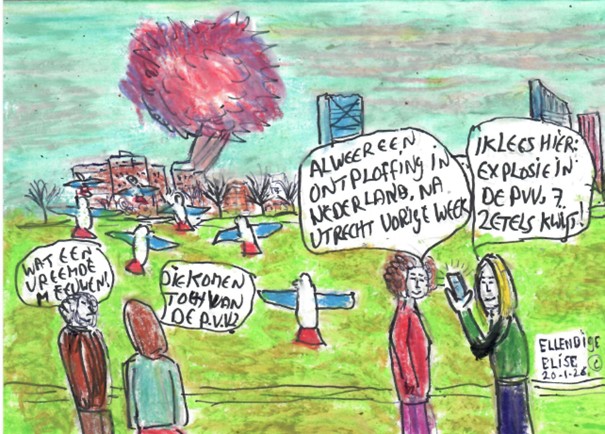 WAT EEN
VREEMDE
MEEUWEN!
DIE KOMEN
TOCH VAN
DE P.V.V?
ALWEER EEN
ONTPLOFFING IN
NEDERLAND, NA
UTRECHT VORIGE WEEK
IK LEES HIER:
EXPLOSIE IN
DE PVV, 7
ZETELS KWIJT!
ELLENDIGE
ELISE
20-1-26 ©